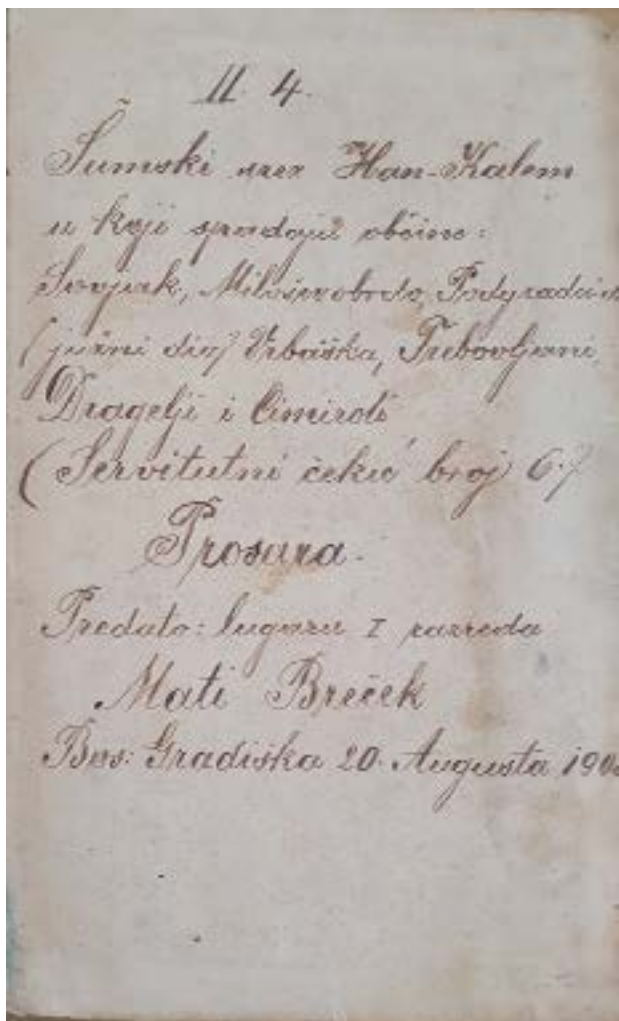 II. 4.
Šumski srez Han-Kalem
u koji spadaju obćine:
Sovjak, Miloševobrdo, Podgradci
(južni dio) Vrbaška, Trebovljani,
Dragelji i Cimiroti
(Servitutni čekić broj 6.)
Prosara.
Predato: lugaru I razreda
Mati Breček
Bos: Gradiška 20. Augusta